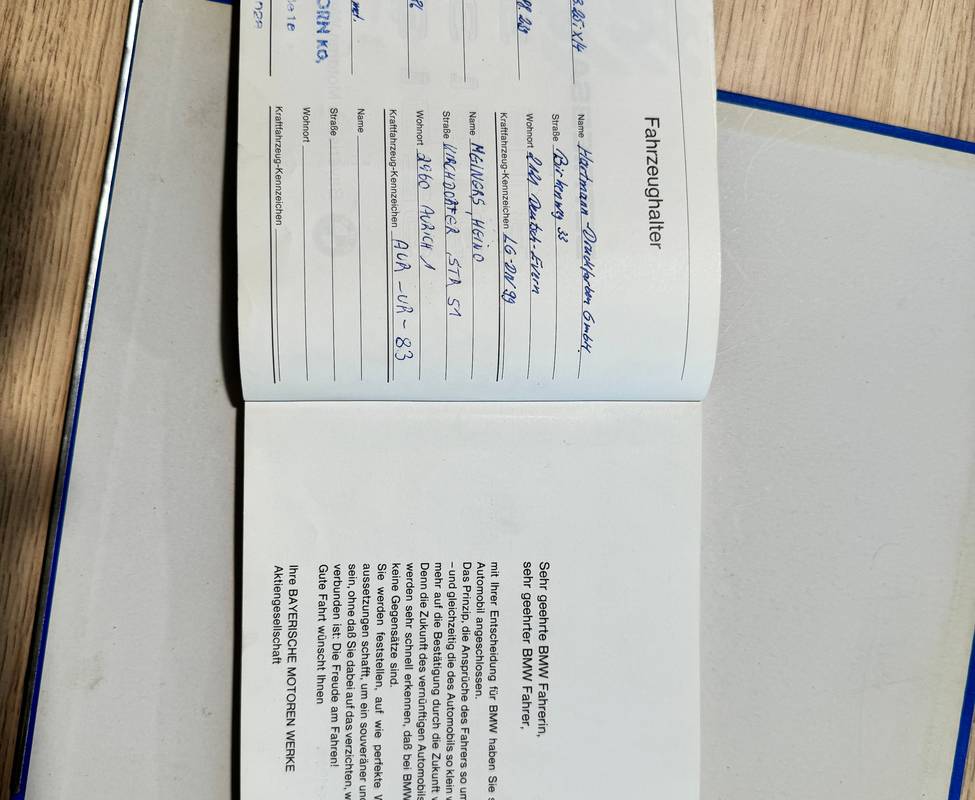 Fahrzeughalter
Name Hartmann-Druckfarben GmbH.
Straße Birkenweg 33
Wohnort Deutsch-Evern
Kraftfahrzeug-Kennzeichen LG-DN 99
Name MEINERS, HEINO
Straße KIRCHDORFER STR 51
Wohnort 2960 AURICH 1
Kraftfahrzeug-Kennzeichen AUR-UR-83
Name
Straße
Wohnort
Kraftfahrzeug-Kennzeichen
KG,
Sehr geehrte BMW Fahrerin,
sehr geehrter BMW Fahrer,
mit Ihrer Entscheidung für BMW haben Sie
Automobil angeschlossen.
Das Prinzip, die Ansprüche des Fahrers so
– und gleichzeitig die des Automobils so klein
mehr auf die Bestätigung durch die Zukunft
Denn die Zukunft des vernünftigen Automobils
werden sehr schnell erkennen, daß bei BMW
keine Gegensätze sind.
Sie werden feststellen, auf wie perfekte
aussetzungen schafft, um ein souveräner
sein, ohne daß Sie dabei auf das verzichten,
verbunden ist: Die Freude am Fahren!
Gute Fahrt wünscht Ihnen
Ihre BAYERISCHE MOTOREN WERKE
Aktiengesellschaft